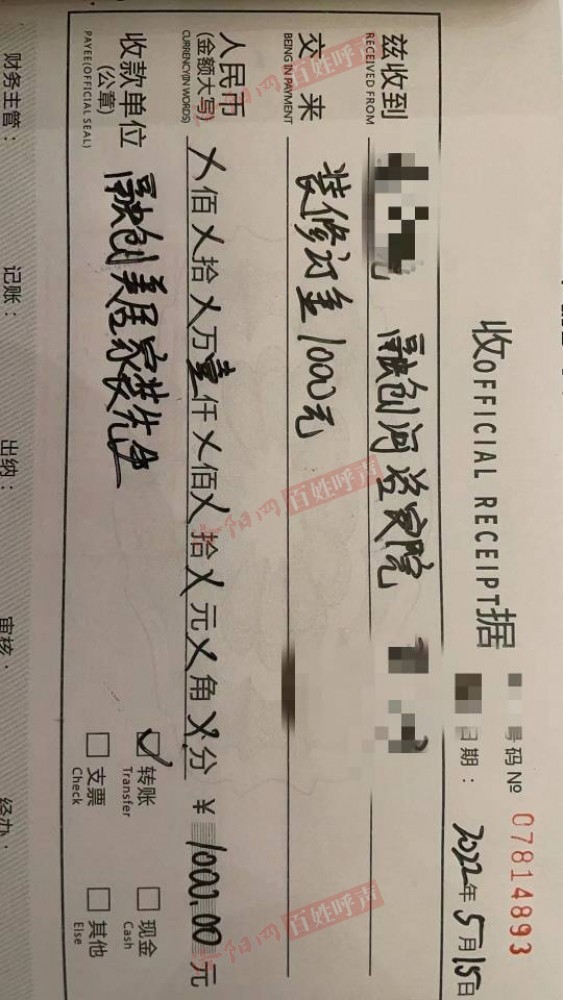 收OFFICIAL RECEIPT据
号码 Nº 07814893
日期： 2022年5月15日
兹收到 融创河滨宸院
RECEIVED FROM
交来 装修订金1000元
BEING IN PAYMENT
人民币
(金额大写) 乂佰乂拾乂万壹仟乂佰乂拾乂元乂角乂分 ￥1000.00元
CURRENCY(IN WORDS)
收款单位 融创美居家装先生
(公章)
PAYEE(OFFICIAL SEAL)
转账 现金
Transfer Cash
支票 其他
Check Else
财务主管： 记账： 出纳： 审核： 经办：
百姓呼声
阳网 百姓呼声
阳网 百姓呼声